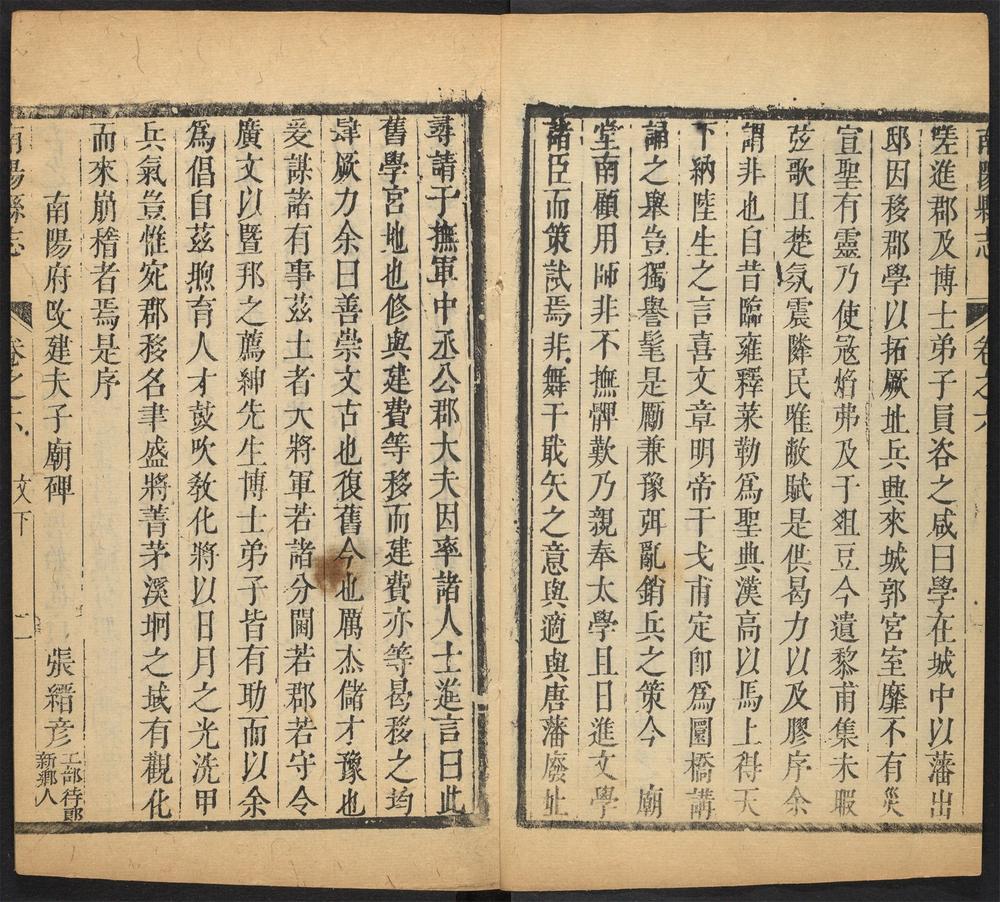 南陽縣志
卷之六
嗟進郡及博士弟子員咨之咸曰學在城中以藩出
邸因移郡學以拓厥址兵興來城郭宮室靡不有災
宣聖有靈乃使寇焰弗及于俎豆今遺黎甫集未暇
弦歌且楚氛震隣民唯敝賦是供曷力以及膠序余
謂非也自昔臨雍釋菜勒為聖典漢高以馬上得天
下納陸生之言喜文章明帝干戈甫定卽為圜橋講
誦之舉豈獨譽髦是勵兼豫弭亂銷兵之策今 廟
堂南顧用師非不撫髀歎乃親奉太學且日進文學
諸臣而策試焉非舞干戢矢之意與適與唐藩廢址
尋請于撫軍中丞公郡大夫因率諸人士進言曰此
舊學宮地也修與建費等移而建費亦等曷移之均
肆厥力余曰善崇文古也復舊今也厲杰儲才豫也
爰諜諸有事茲土者大將軍若諸分閫若郡若守令
廣文以暨邦之薦紳先生博士弟子皆有助而以余
為倡自茲煦育人才鼓吹敎化將以日月之光洗甲
兵氣豈惟宛郡移名聿盛將菁茅溪坰之域有觀化
而來崩稽者焉是序
南陽府改建夫子廟碑
張縉彥 工部侍郎
新鄉人
南陽縣志
卷之六 文下 二